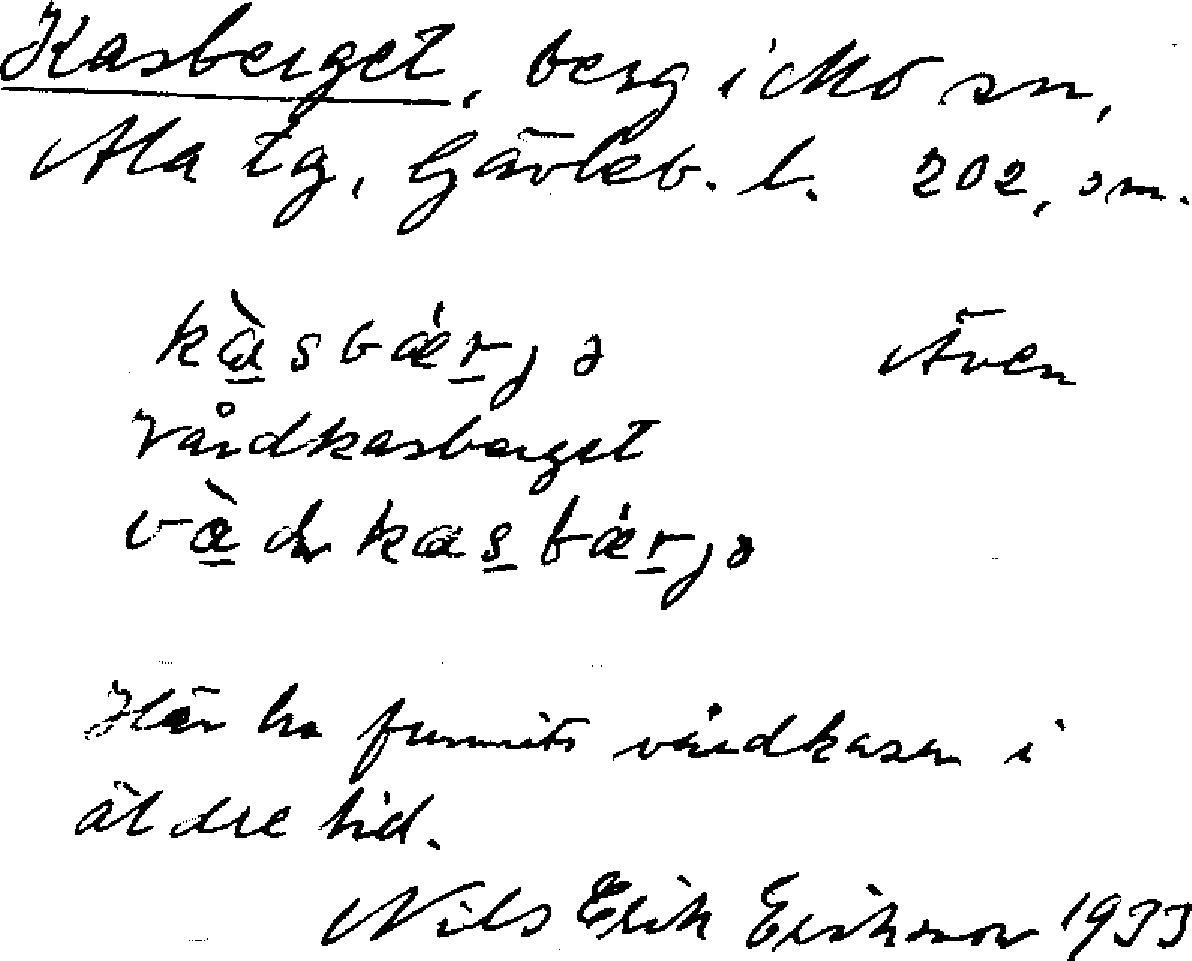 Kasberget, berg i Mo sn,
Ala tg, Gävleb. l. 202, om.
kàsbǽrjə Även
Vårdkasberget
vàdkasbǽrjə
Här ha funnits vårdkasar i
äldre tid.
Nils Erik Eriksson 1933